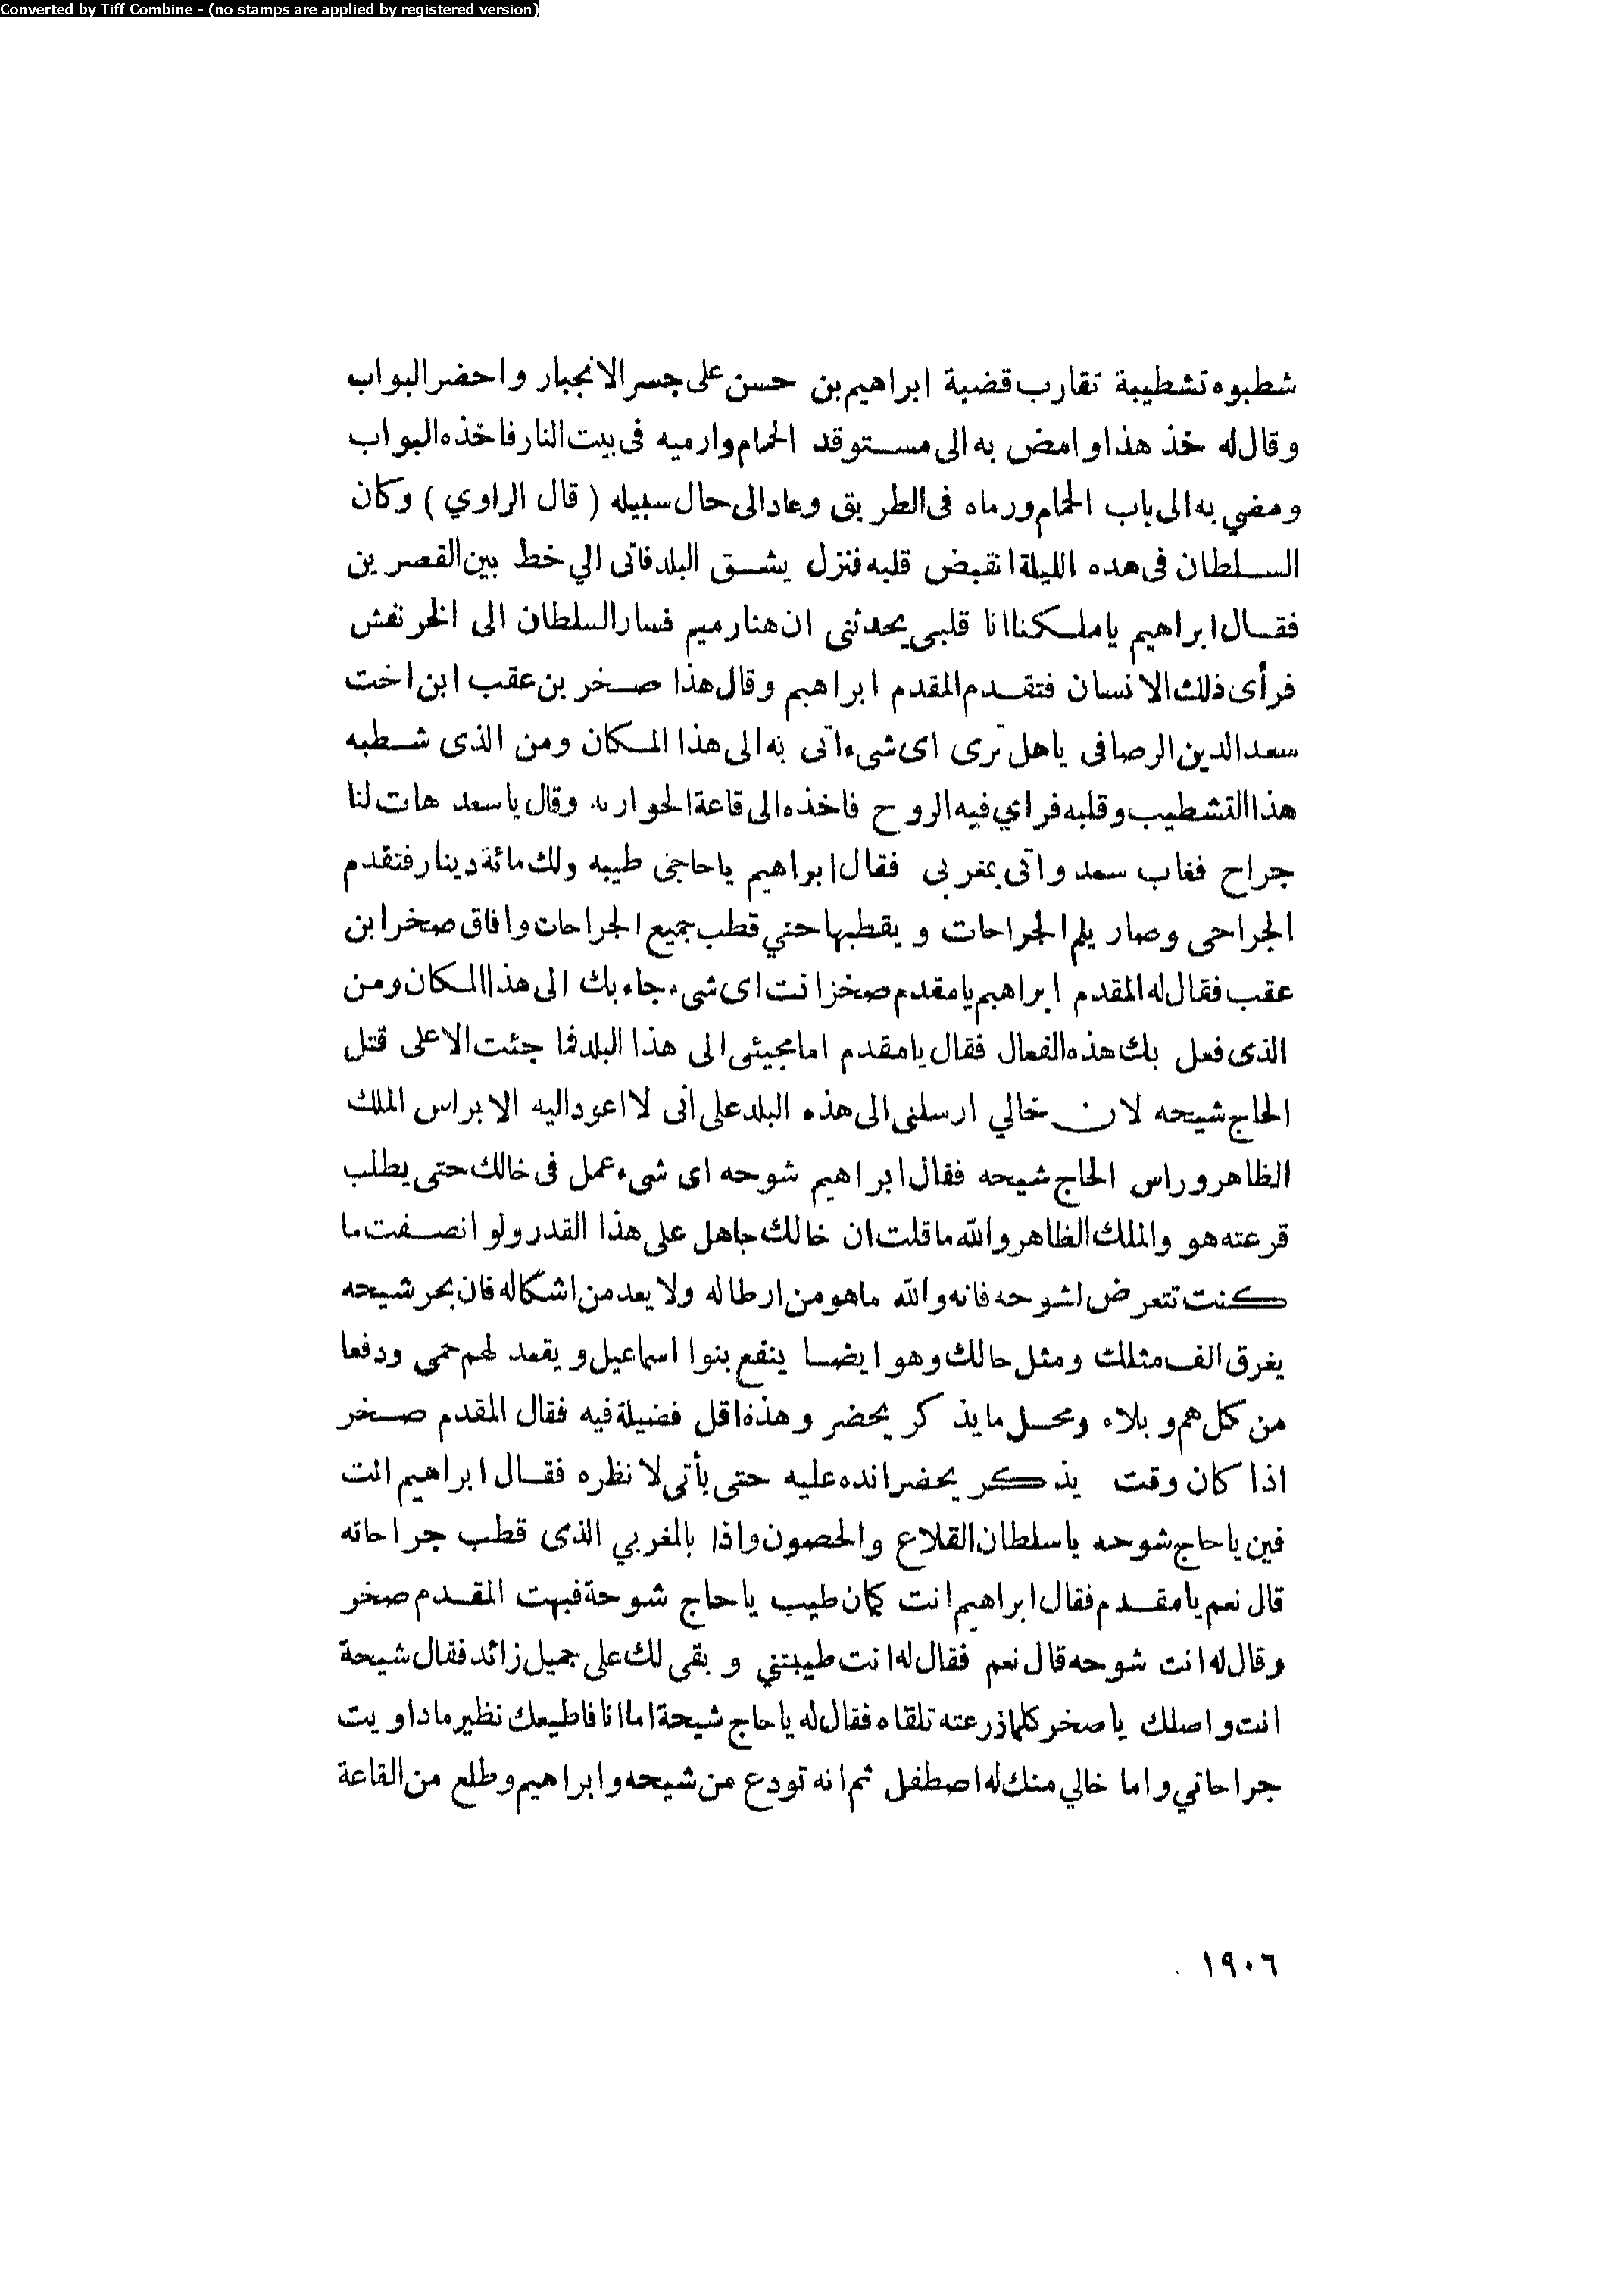 Converted by Tiff Combine - (no stamps are applied by registered version)
شطبوه تشطيبة تقارب قضية ابراهيم بن حسن على جسر الانجبار واحضر البواب
وقال له خذ هذا وامض به الى مستوقد الحمام وارميه فى بيت النار فاخذه البواب
ومضي به الى باب الحمام ورماه فى الطريق وعاد الى حال سبيله ( قال الراوي ) وكان
السلطان فى هده الليلة انقبض قلبه فنزل يشق البلد فاتى الي خط بين القصرين
فقال ابراهيم ياملكنا انا قلبى يحدثنى ان هنا رميم فسار السلطان الى الخرنفش
فرأى ذلك الانسان فتقدم المقدم ابراهيم وقال هذا صخر بن عقب ابن اخت
سعد الدين الرصافى ياهل ترى اى شىء اتى به الى هذا المكان ومن الذى شطبه
هذا التشطيب وقلبه فراي فيه الروح فاخذه الى قاعة الحوارنه وقال ياسعد هات لنا
جراح فغاب سعد واتى بمغربى فقال ابراهيم ياحاجى طيبه ولك مائة دينار فتقدم
الجراحى وصار يلم الجراحات ويقطبها حتي قطب جميع الجراحات وافاق صخر ابن
عقب فقال له المقدم ابراهيم يامقدم صخر انت اى شىء جاء بك الى هذا المكان ومن
الذى فعل بك هذه الفعال فقال يامقدم اما مجيئى الى هذا البلد فما جئت الا على قتل
الحاج شيحه لان خالي ارسلنى الى هذه البلد على انى لا اعود اليه الا براس الملك
الظاهر وراس الحاج شيحه فقال ابراهيم شوحه اى شىء عمل فى خالك حتى يطلب
قرعته هو والملك الظاهر والله ماقلت ان خالك جاهل على هذا القدر ولو انصفت ما
كنت تتعرض لشوحه فانه والله ماهو من ارطاله ولا يعد من اشكاله فان بحر شيحه
يغرق الف مثلك ومثل حالك وهو ايضا ينفع بنوا اسماعيل ويقعد لهم حمى ودفعا
من كل هم وبلاء ومحل مايذكر يحضر وهذه اقل فضيلة فيه فقال المقدم صخر
اذا كان وقت يذكر يحضر انده عليه حتى يأتى لانظره فقال ابراهيم انت
فين ياحاج شوحه ياسلطان القلاع والحصون واذا بالمغربي الذى قطب جراحاته
قال نعم يامقدم فقال ابراهيم انت كمان طيب ياحاج شوحة فبهت المقدم صخر
وقال له انت شوحه قال نعم فقال له انت طيبتني وبقى لك على جميل زائد فقال شيحة
انت واصلك ياصخر كلما ذرعته تلقاه فقال له ياحاج شيحة اما انا فاطيعك نظير ماداويت
جراحاتي واما خالي منك له اصطفل ثم انه تودع من شيحه وابراهيم وطلع من القاعة
١٩٠٦